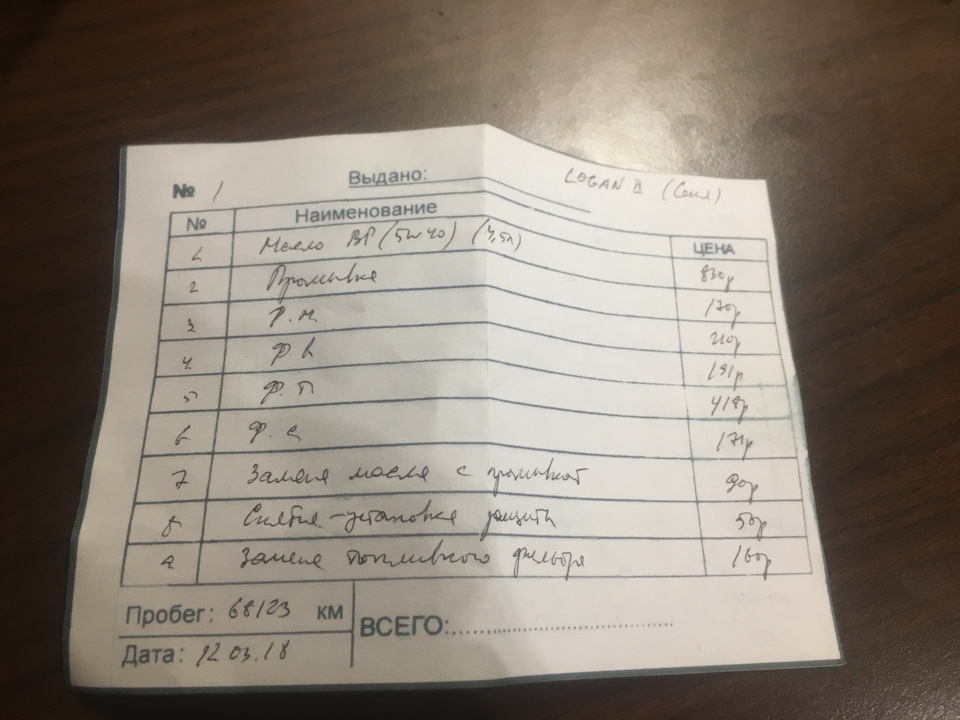 № 1 Выдано: LOGAN II (Саня)
№ Наименование ЦЕНА
1 Масло BP (5w40) (3,5л) 830р
2 Промывка 170р
3 Ф.м 210р
4 Ф в 191р
5 Ф.п 418р
6 Ф.с 171р
7 Замена масла с промывкой 90р
8 Снятие-установка защиты 50р
9 Замена топливного фильтра 160р
Пробег: 68123 км ВСЕГО:
Дата: 12.03.18